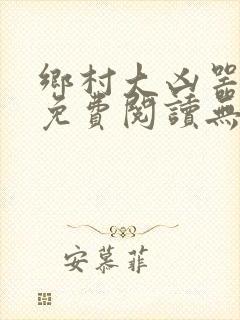 鄉村大凶器
免費閱讀無
安慕菲